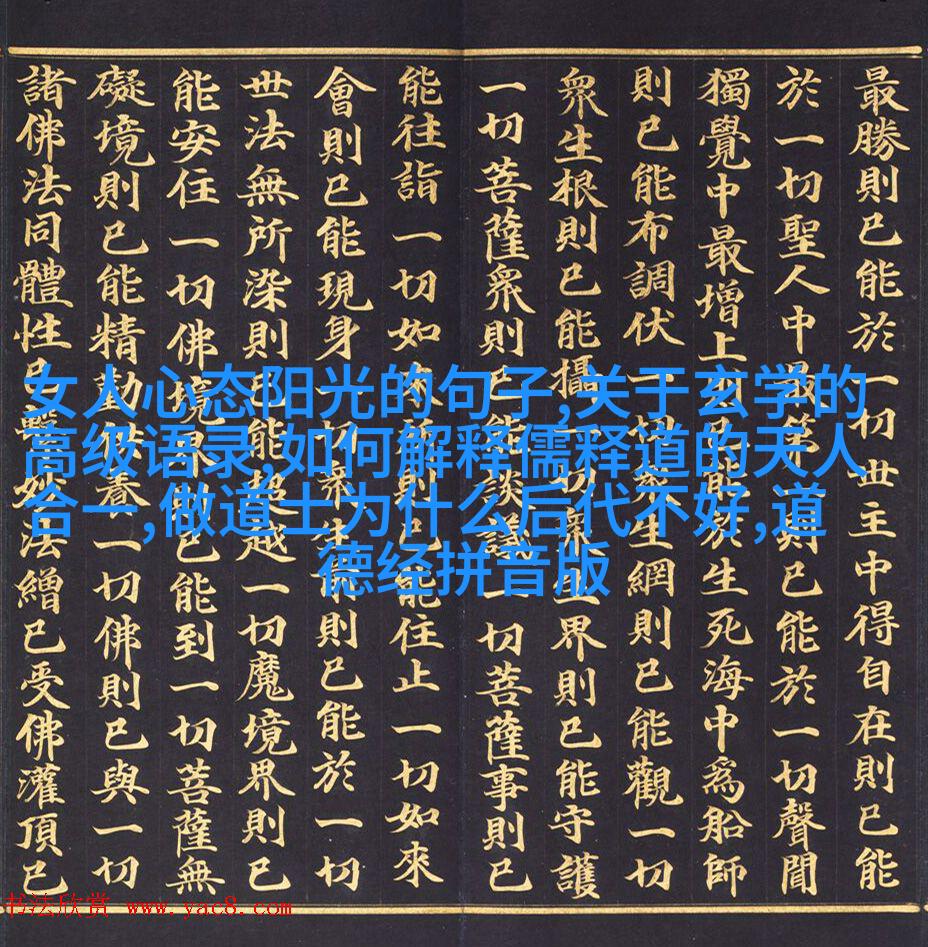 最勝則已能於一切世主中得自在則已能
於一切聖人中最第一則已能於一切聲聞
獨覺中最增上則已能於生死海中爲船師
則已能布調伏一切衆生網則已能觀一切
衆生根則已能攝一切衆生界則已能守護
一切菩薩衆則已能談議一切菩薩事則已
能往詣一切如來所則已能住止一切如來
會則已能現身一切衆生前則已能於一切
世法無所染則已能超越一切魔境界則已
能安住一切佛境界則已能到一切菩薩無
礙境則已能精勤供養一切佛則已與一切
諸佛法同體性已繫妙法繒已受佛灌頂已
女人心态阳光的句子,关于玄学的
高级语录,如何解释儒释道的天人
合一,做道士为什么后代不好,道
德经拼音版
书法欣赏 www.yac8.com